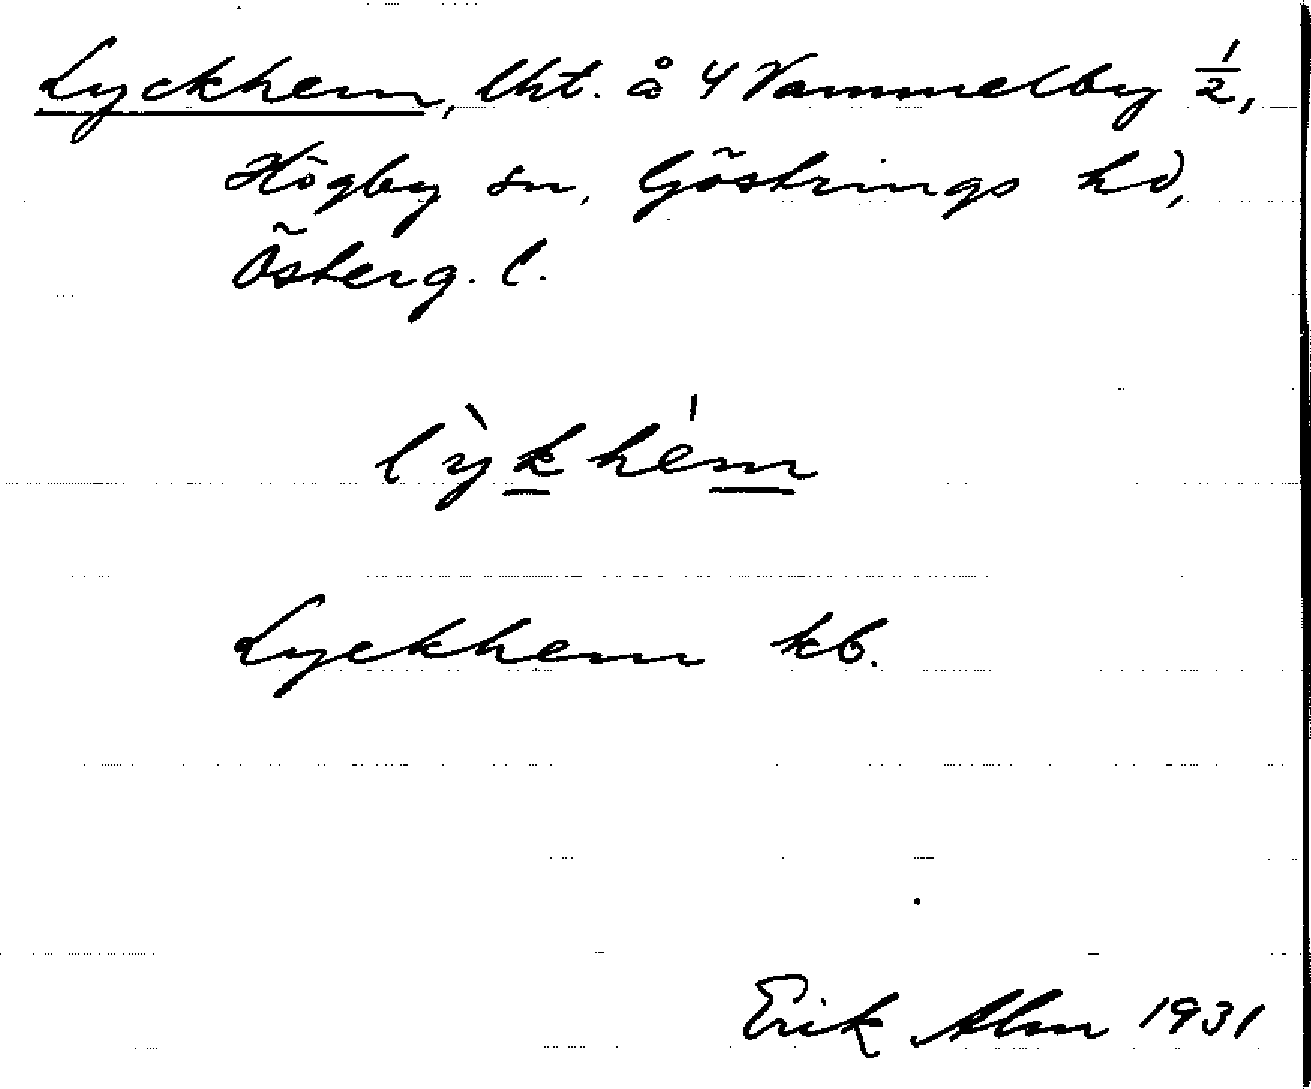 Lyckhem, lht. å 4 Vammelby 1/2,
Högby sn, Göstrings hd,
Österg. l.
lỳkhém
Lyckhem kb.
Erik Alm 1931